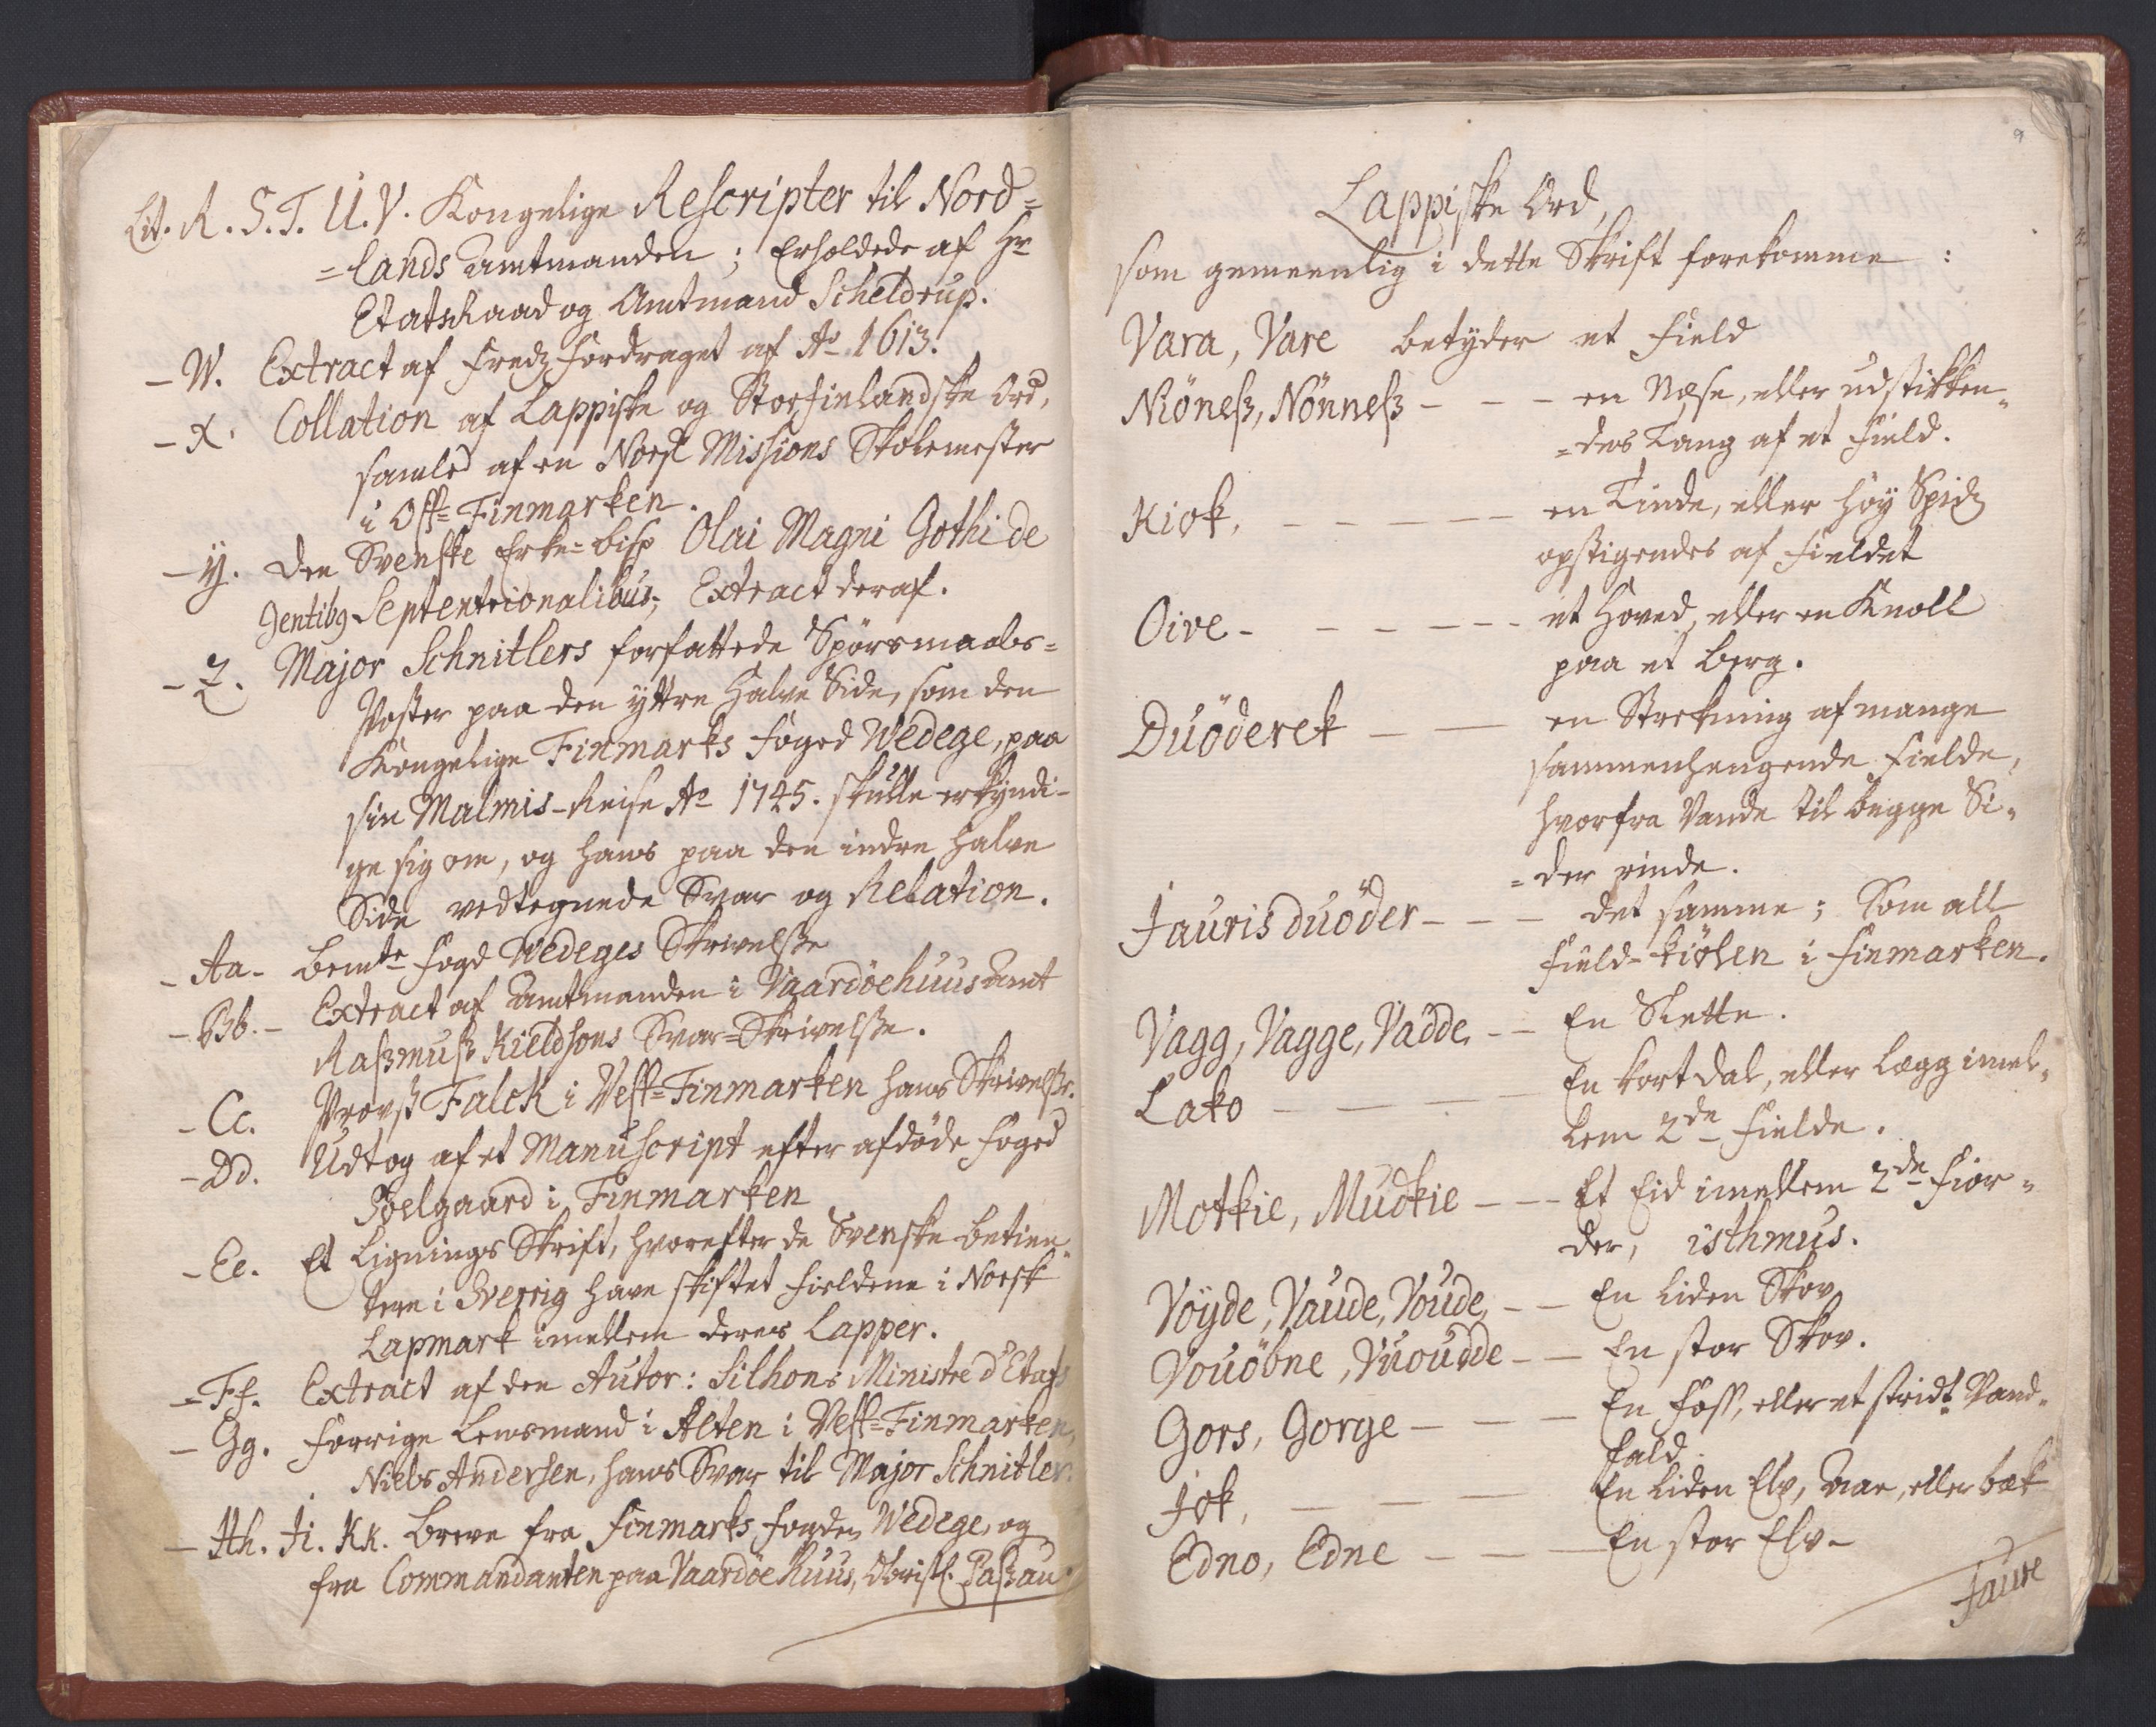 Lit. R. S. T. U. V. Kongelige Rescripter til Nord=
=lands Amtmanden; Erholdede af Hr
EtatsRaad og Amtmand Scheldrup.
- W. Extract af Fredz Fordraget af Ao 1613.
- X. Collation af Lappiske og Storfinlandske Ord,
samled af en Norsk Missions Skolemester
i Ost=Finmarken.
- Y. Den Svenske Erke=bisp Olai Magni Gothi de
gentibg Septentrionalibus; Extract deraf.
- Z. Major Schnitlers forfattede Spörsmaals=
Poster paa den yttre Halve Side, som den
Kongelige Finmarks Foged Wedege, paa
sin Malmis-Reise Ao 1745. skulle erkyndi-
ge sig om, og hans paa den indre halve
Side vedtegnede Svar og Relation.
- Aa - bemte Fogd Wedeges Skrivelsse
- Bb. - Extract af Amtmanden i Vaardöehuus Amt
Rassmuss Kieldsons Svar=Skrivelsse.
- Cc. Provst Falck i Vest=Finmarken hans Skrivelsse.
- Dd. Udtog af et Manuscript efter afdöde Foged
Soelgaard i Finmarken
- Ee. Et Lignings Skrift, hvorefter de Svenske betien-
tere i Sverrig have skiftet Fieldene i Norsk
Lapmark imellem deres Lapper.
- Ff. Extract af den Autor: Silhons Ministre d'Etats
- Gg. Forrige Lensmand i Alten i Vest=Finmarken,
Niels Andersen, hans Svar til Major Schnitler.
- Hh. Ii. Kk. Breve fra Finmarks Fogden Wedege, og
fra Commandanten paa Vaardöehuus, Obristl. Passau.
9
Lappiske Ord,
som gemeenlig i dette Skrift forekomme :
Vara, Vare betyder et Field
Niöness, Nönness - - - en Næse, eller udstikken-
=des Tang af et Field.
Kiok, - - - - - en Tinde, eller höy Spidz
opstigendes af Fieldet
Oive - - - - - - et Hoved, eller en Knoll
paa et berg.
Duöderek - - en Strekning af mange
sammenhengende Fielde,
hvorfra Vande til begge Si-
=der rinde.
Jauris duöder - - - det samme; Som all
Field-kiölen i Finmarken.
Vagg, Vagge, Vadde, - - En Slette.
Lako - - - - En kort dal, eller Lægg imel-
lem 2de Fielde.
Motkie, Mudkie - - - Et Eid imellem 2de Fior-
der, isthmus.
Vöyde, Vaude, Voude, - - En liden Skov
Vouöbne, Vuoudde - - En stor Skov.
Gors, Gorge - - - En Foss, eller et stridt Vand-
fald
Jok, - - - En liden Elv, Aae, eller bæk
Edno, Edne - - - En stor Elv -
Jaure